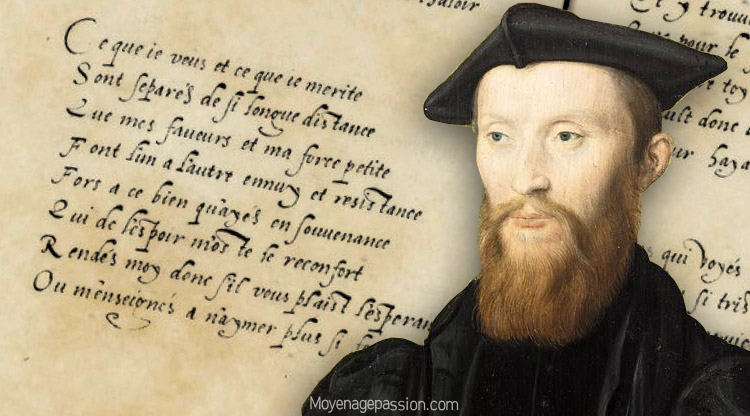 Ce que ie veus et ce que ie merite
Sont separés de si longue distance
Que mes faveurs et ma force petite
Font lun a l'autre ennuy et resistance
Fors a ce bien qu'ayés en souvenance
Qui de l'espoir m'oste le reconfort
Rendés moy donc s'il vous plaist l'esperan
Ou m'enseignés a n'aymer plus si
y trouv
pour le
toy
ult donc
ur haya
qui voyés
si tris
Moyenagepassion.com